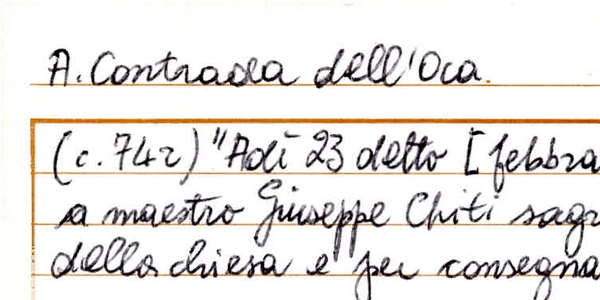 A. Contrada dell'Oca.
(c. 74r) "Adì 23 detto [febbra
a maestro Giuseppe Chiti sagr
della chiesa e per consegna